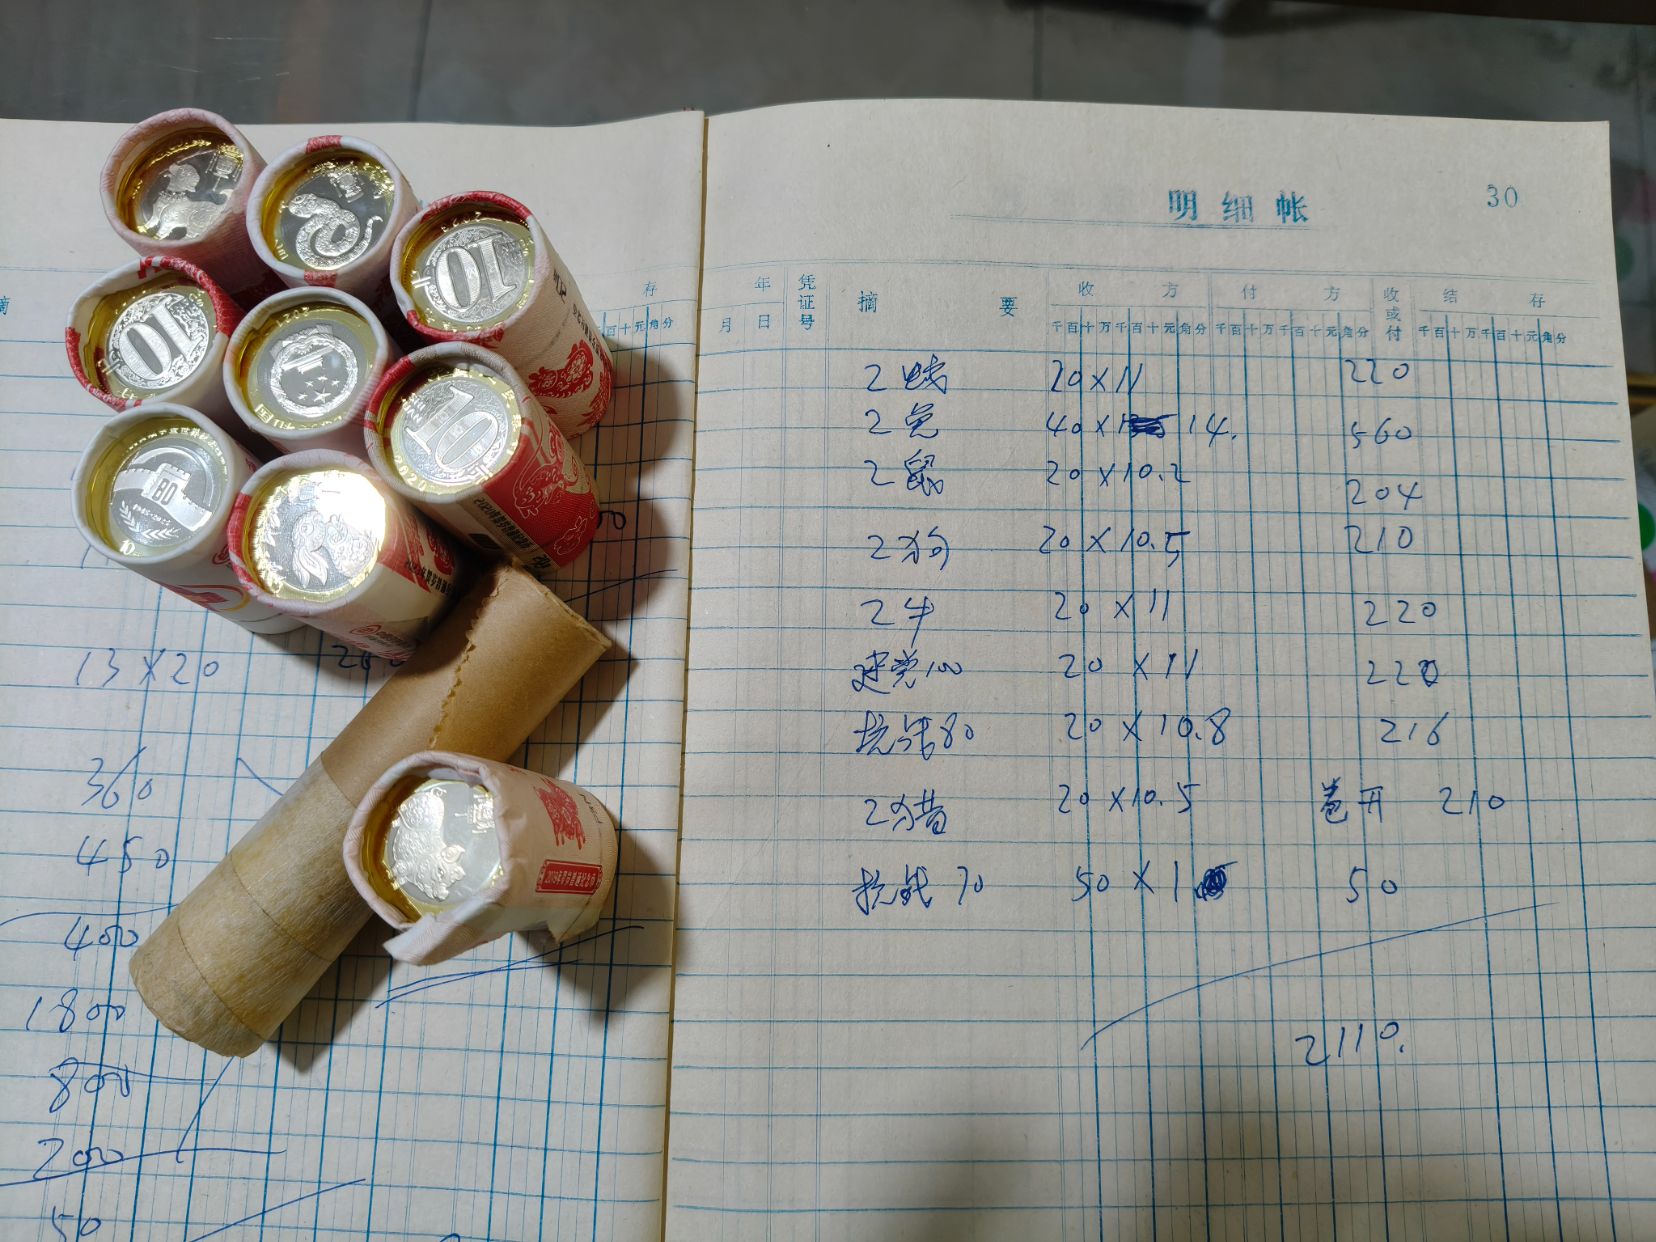 明细帐
30
存
百十元角分
年
月 日
凭证号
摘 要
收 方
付 方
收或付
结 存
千百十万千百十元角分
千百十万千百十元角分
千百十万千百十元角分
2蛇 20×11 220
2兔 40×1 14. 560
2鼠 20×10.2 204
2狗 20×10.5 210
2牛 20×11 220
建党100 20×11 220
抗战80 20×10.8 216
2猪 20×10.5 卷开 210
抗战70 50×1 50
2110.
13×20
360
450
400
1800
800
200
50
10
10
10
80
2020
2019年贺岁普通纪念币